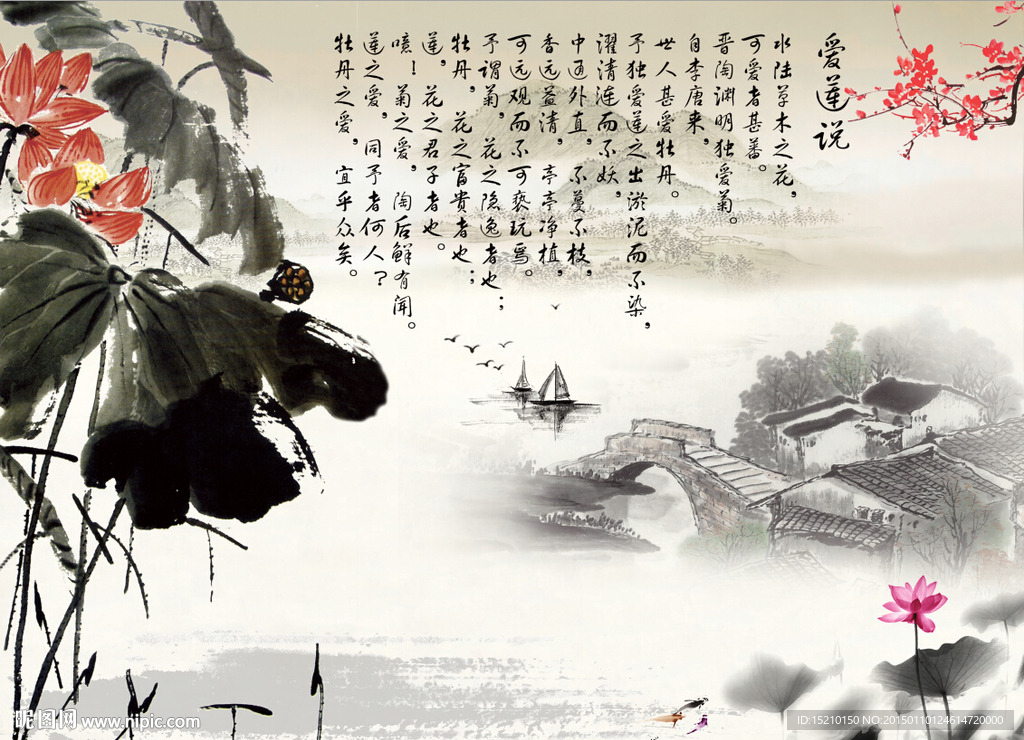 爱莲说
水陆草木之花，
可爱者甚蕃。
晋陶渊明独爱菊。
自李唐来，
世人甚爱牡丹。
予独爱莲之出淤泥而不染，
濯清涟而不妖，
中通外直，不蔓不枝，
香远益清，亭亭净植，
可远观而不可亵玩焉。
予谓菊，花之隐逸者也；
牡丹，花之富贵者也；
莲，花之君子者也。
噫！菊之爱，陶后鲜有闻。
莲之爱，同予者何人？
牡丹之爱，宜乎众矣。
昵图网 www.nipic.com
ID:15210150 NO:20150110124614720000